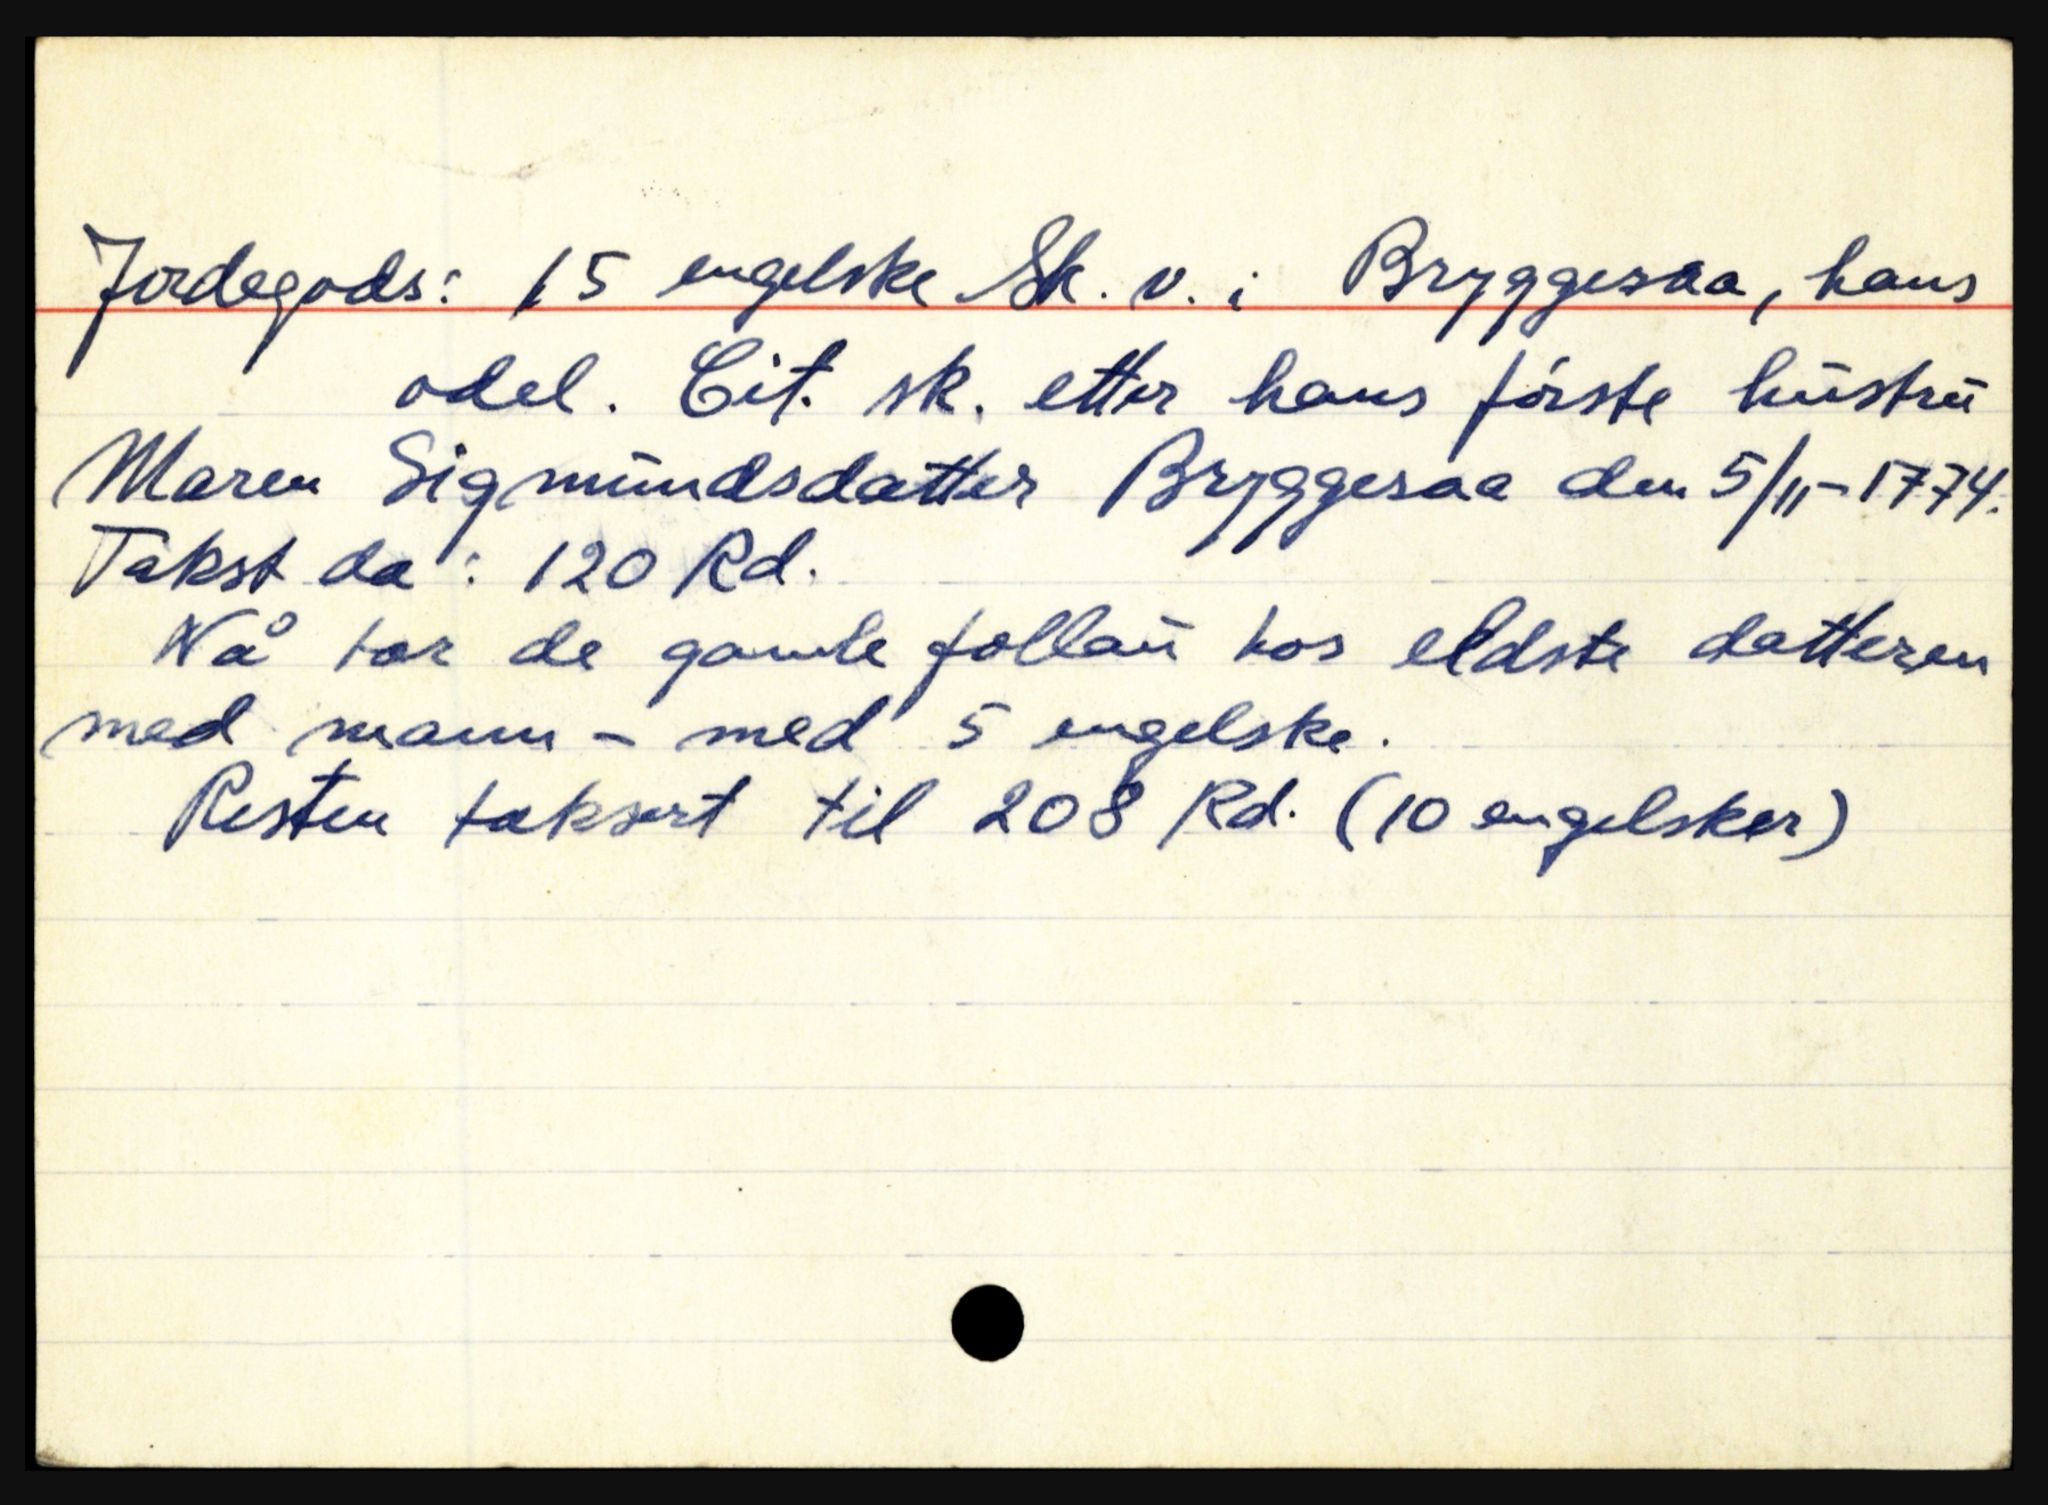 Jordegods: 15 engelske Sk. v. i Bryggesaa, hans
odel. Cit. sk. etter hans første hustru
Maren Sigmundsdatter Bryggesaa den 5/11-1774.
Takst da: 120 Rd.
Nå tar de gamle follau hos eldste datteren
med mann - med 5 engelske.
Resten taksert til 208 Rd. (10 engelsker)